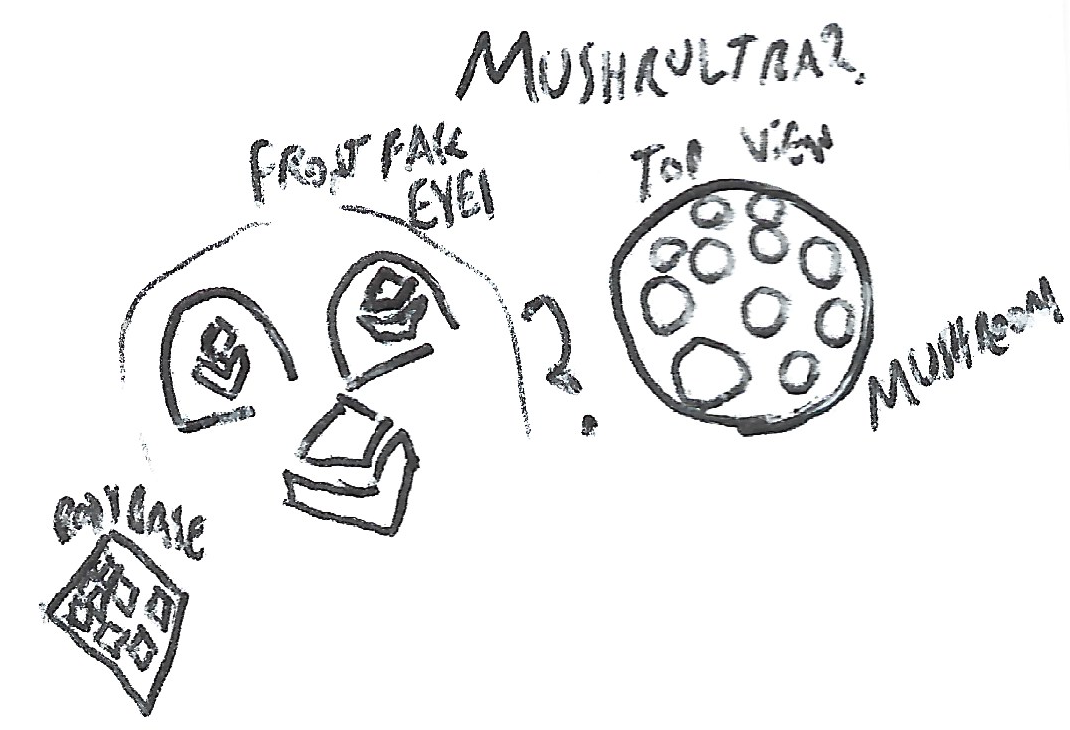 MUSHRULTRA?
FRONT FAKE
EYES
TOP VIEW
?
MUSHROOM
BODY BASE